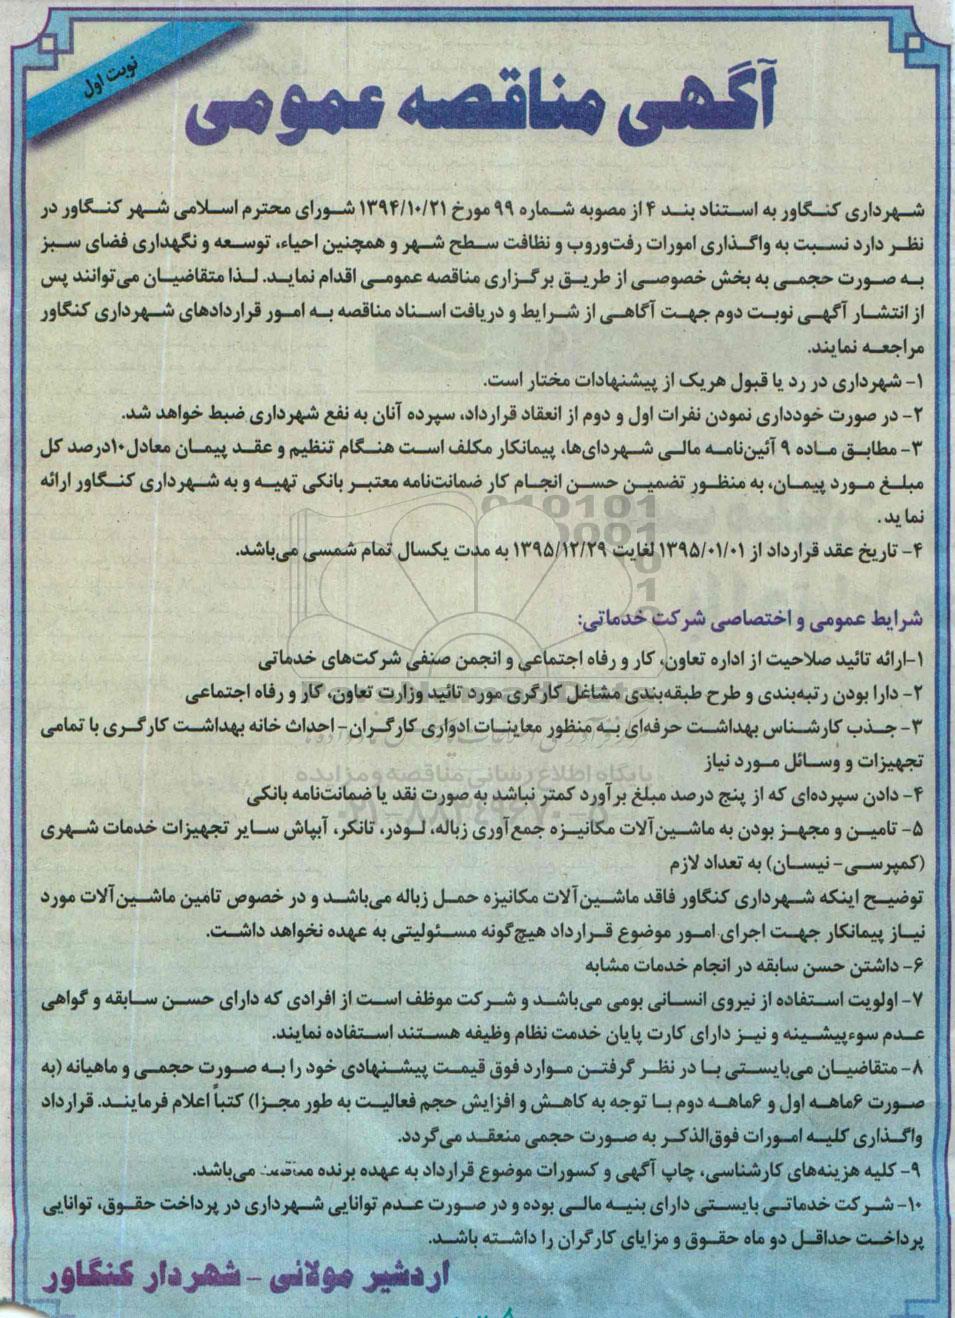 نوبت اول
آگهی مناقصه عمومی
شهرداری کنگاور به استناد بند ۴ از مصوبه شماره ۹۹ مورخ ۱۳۹۴/۱۰/۲۱ شورای محترم اسلامی شهر کنگاور در
نظر دارد نسبت به واگذاری امورات رفت‌وروب و نظافت سطح شهر و همچنین احیاء، توسعه و نگهداری فضای سبز
به صورت حجمی به بخش خصوصی از طریق برگزاری مناقصه عمومی اقدام نماید. لذا متقاضیان می‌توانند پس
از انتشار آگهی نوبت دوم جهت آگاهی از شرایط و دریافت اسناد مناقصه به امور قراردادهای شهرداری کنگاور
مراجعه نمایند.
۱- شهرداری در رد یا قبول هریک از پیشنهادات مختار است.
۲- در صورت خودداری نمودن نفرات اول و دوم از انعقاد قرارداد، سپرده آنان به نفع شهرداری ضبط خواهد شد.
۳- مطابق ماده ۹ آئین‌نامه مالی شهردای‌ها، پیمانکار مکلف است هنگام تنظیم و عقد پیمان معادل۱۰درصد کل
مبلغ مورد پیمان، به منظور تضمین حسن انجام کار ضمانت‌نامه معتبر بانکی تهیه و به شهرداری کنگاور ارائه
نماید.
۴- تاریخ عقد قرارداد از ۱۳۹۵/۰۱/۰۱ لغایت ۱۳۹۵/۱۲/۲۹ به مدت یکسال تمام شمسی می‌باشد.
شرایط عمومی و اختصاصی شرکت خدماتی:
۱-ارائه تائید صلاحیت از اداره تعاون، کار و رفاه اجتماعی و انجمن صنفی شرکت‌های خدماتی
۲- دارا بودن رتبه‌بندی و طرح طبقه‌بندی مشاغل کارگری مورد تائید وزارت تعاون، کار و رفاه اجتماعی
۳- جذب کارشناس بهداشت حرفه‌ای به منظور معاینات ادواری کارگران- احداث خانه بهداشت کارگری با تمامی
تجهیزات و وسائل مورد نیاز
پایگاه اطلاع رسانی مناقصه و مزایده
۴- دادن سپرده‌ای که از پنج درصد مبلغ برآورد کمتر نباشد به صورت نقد یا ضمانت‌نامه بانکی
۵- تامین و مجهز بودن به ماشین‌آلات مکانیزه جمع‌آوری زباله، لودر، تانکر، آبپاش سایر تجهیزات خدمات شهری
(کمپرسی- نیسان) به تعداد لازم
توضیح اینکه شهرداری کنگاور فاقد ماشین‌آلات مکانیزه حمل زباله می‌باشد و در خصوص تامین ماشین‌آلات مورد
نیاز پیمانکار جهت اجرای امور موضوع قرارداد هیچ‌گونه مسئولیتی به عهده نخواهد داشت.
۶- داشتن حسن سابقه در انجام خدمات مشابه
۷- اولویت استفاده از نیروی انسانی بومی می‌باشد و شرکت موظف است از افرادی که دارای حسن سابقه و گواهی
عدم سوءپیشینه و نیز دارای کارت پایان خدمت نظام وظیفه هستند استفاده نمایند.
۸- متقاضیان می‌بایستی با در نظر گرفتن موارد فوق قیمت پیشنهادی خود را به صورت حجمی و ماهیانه (به
صورت ۶ماهه اول و ۶ماهه دوم با توجه به کاهش و افزایش حجم فعالیت به طور مجزا) کتباً اعلام فرمایند. قرارداد
واگذاری کلیه امورات فوق‌الذکر به صورت حجمی منعقد می‌گردد.
۹- کلیه هزینه‌های کارشناسی، چاپ آگهی و کسورات موضوع قرارداد به عهده برنده مناقصه می‌باشد.
۱۰- شرکت خدماتی بایستی دارای بنیه مالی بوده و در صورت عدم توانایی شهرداری در پرداخت حقوق، توانایی
پرداخت حداقل دو ماه حقوق و مزایای کارگران را داشته باشد.
اردشیر مولائی - شهردار کنگاور